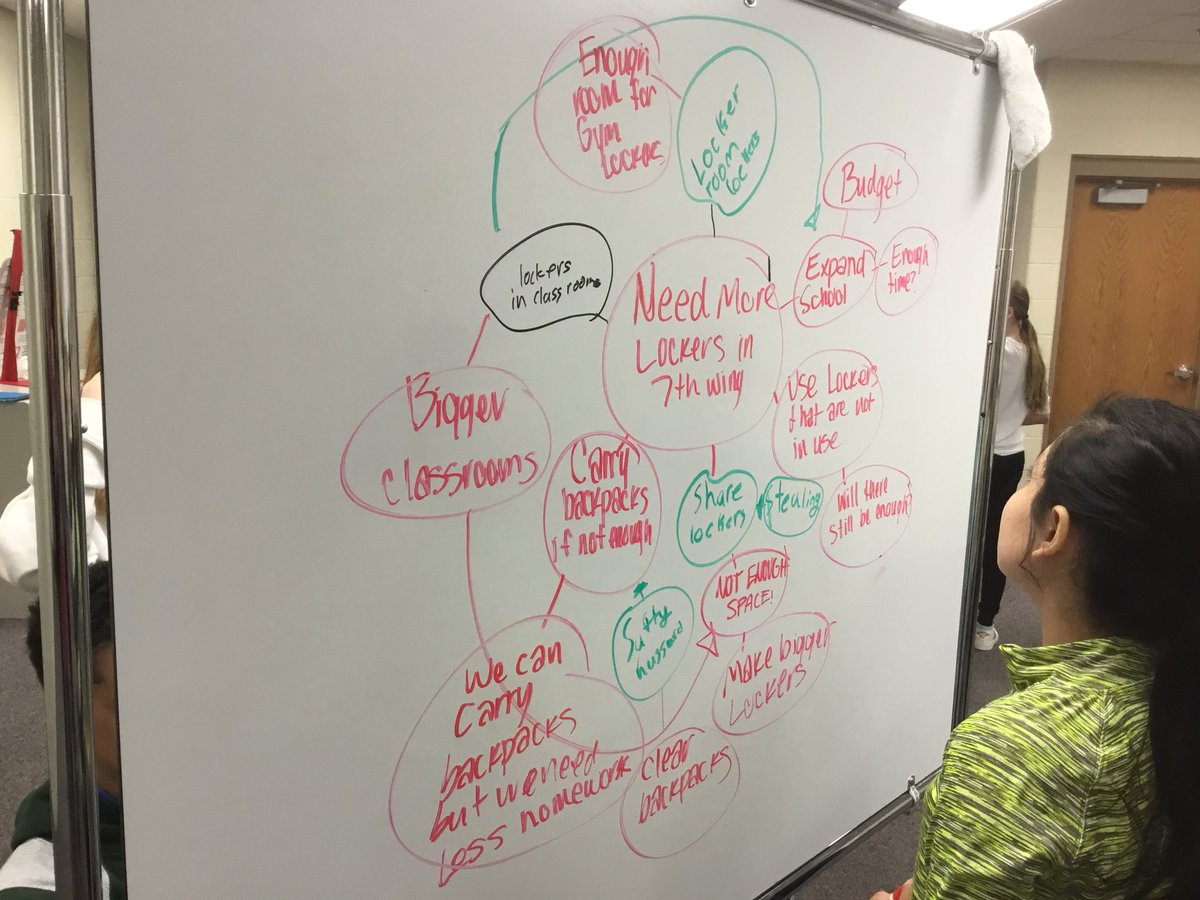 Enough
room for
Gym
lockers
Locker
room
lockers
Budget
lockers
in classrooms
Need More
Lockers in
7th wing
Expand
School
Enough
time?
Bigger
classrooms
Use Lockers
that are not
in use
Carry
backpacks
if not enough
Share
lockers
Stealing
Will there
still be enough?
NOT ENOUGH
SPACE!
We can
Carry
backpacks
but we need
less homework
Less
Make bigger
Lockers
clear
backpacks